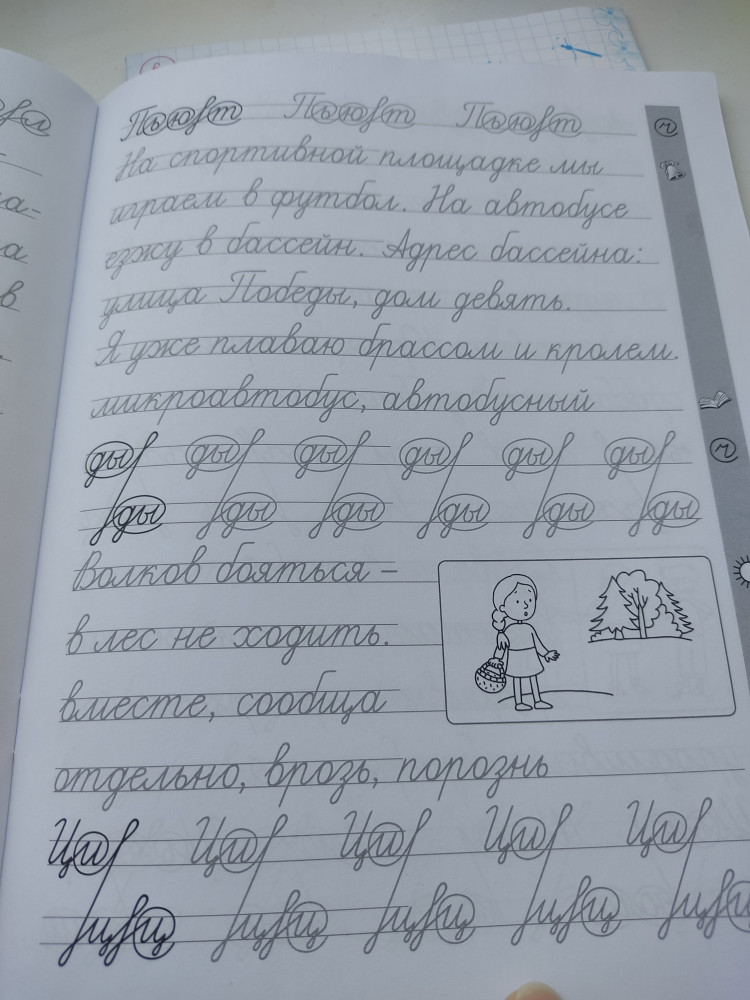 На спортивной площадке мы
играем в футбол. На автобусе
езжу в бассейн. Адрес бассейна:
улица Победы, дом девять.
Я уже плаваю брассом и кролем.
микроавтобус, автобусный
ды ды ды ды ды ды
ды ды ды ды ды ды
Волков бояться –
в лес не ходить.
вместе, сообща
отдельно, врозь, порознь